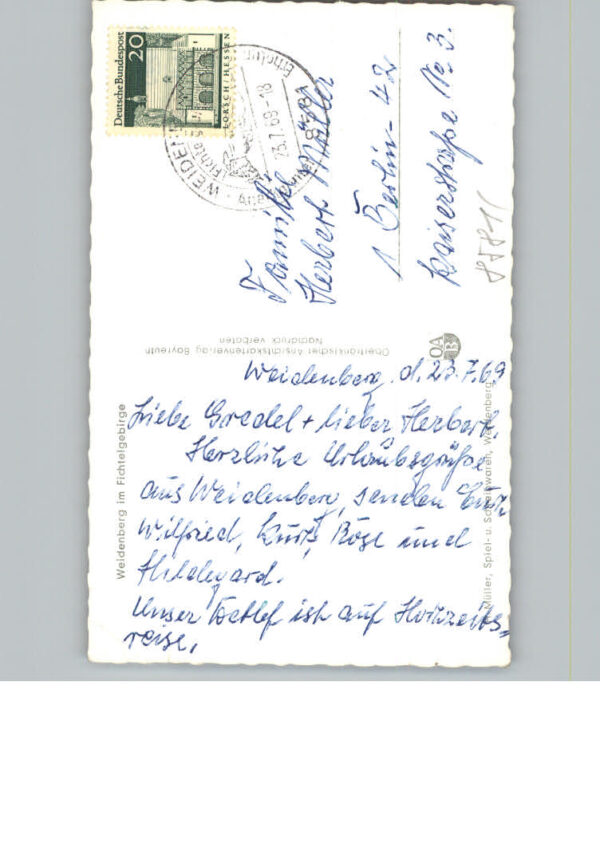 Deutsche Bundespost
20
LORSCH/HESSEN
23.7.69-18
Familie
Herbert Müller
1 Berlin-42
Kaiserstraße No 3.
Weidenberg im Fichtelgebirge
Oberfränkischer Ansichtskartenverlag Bayreuth
Nachdruck verboten
OA
Müller, Spiel- u. Schreibwaren, Weidenberg
Weidenberg, d. 23.7.69
Liebe Gredel + lieber Herbert,
Herzliche Urlaubsgrüße
aus Weidenberg, senden Euch
Wilfried, Kurt, Rose und
Hildegard.
Unser Detlef ist auf Hochzeits-
reise.